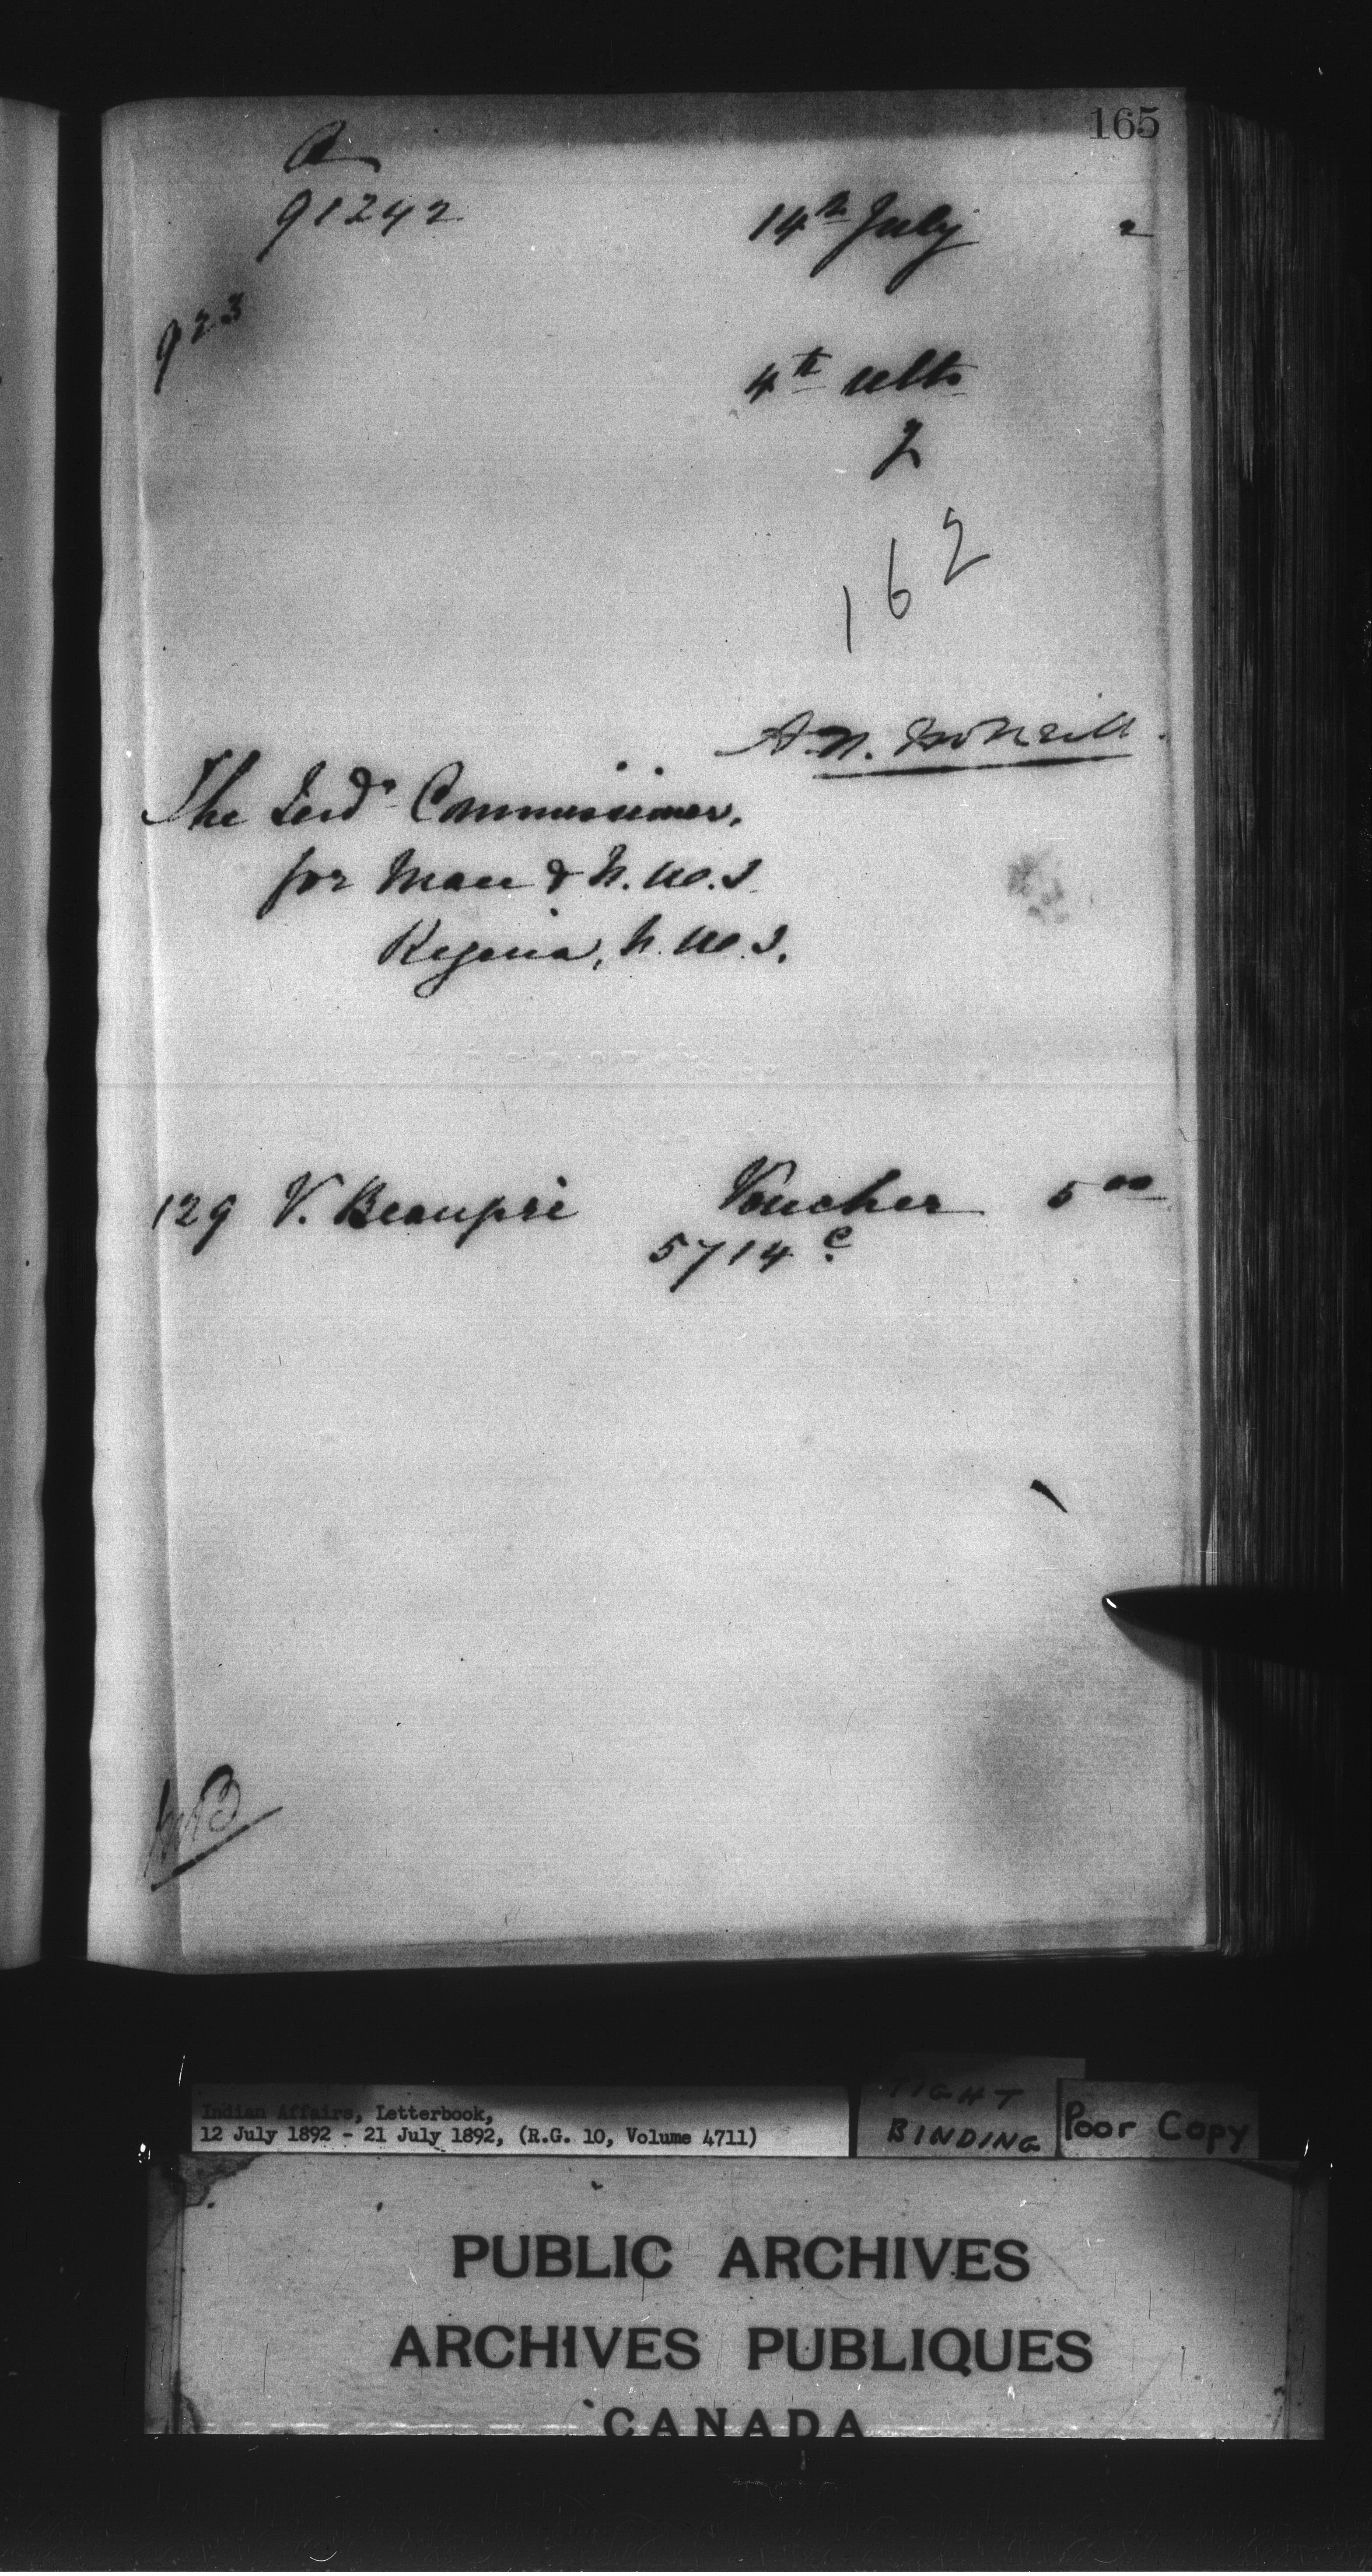 165
91242
14th July 2
923
4th ulto
2
162
A.N. McNeill.
The Ind. Commissioner,
for Man & N.W.T.
Regina, N.W.T.
129 V. Beaupré Voucher 5 00
5714 c
TIGHT
BINDING
Poor Copy
Indian Affairs, Letterbook,
12 July 1892 - 21 July 1892, (R.G. 10, Volume 4711)
PUBLIC ARCHIVES
ARCHIVES PUBLIQUES
CANADA